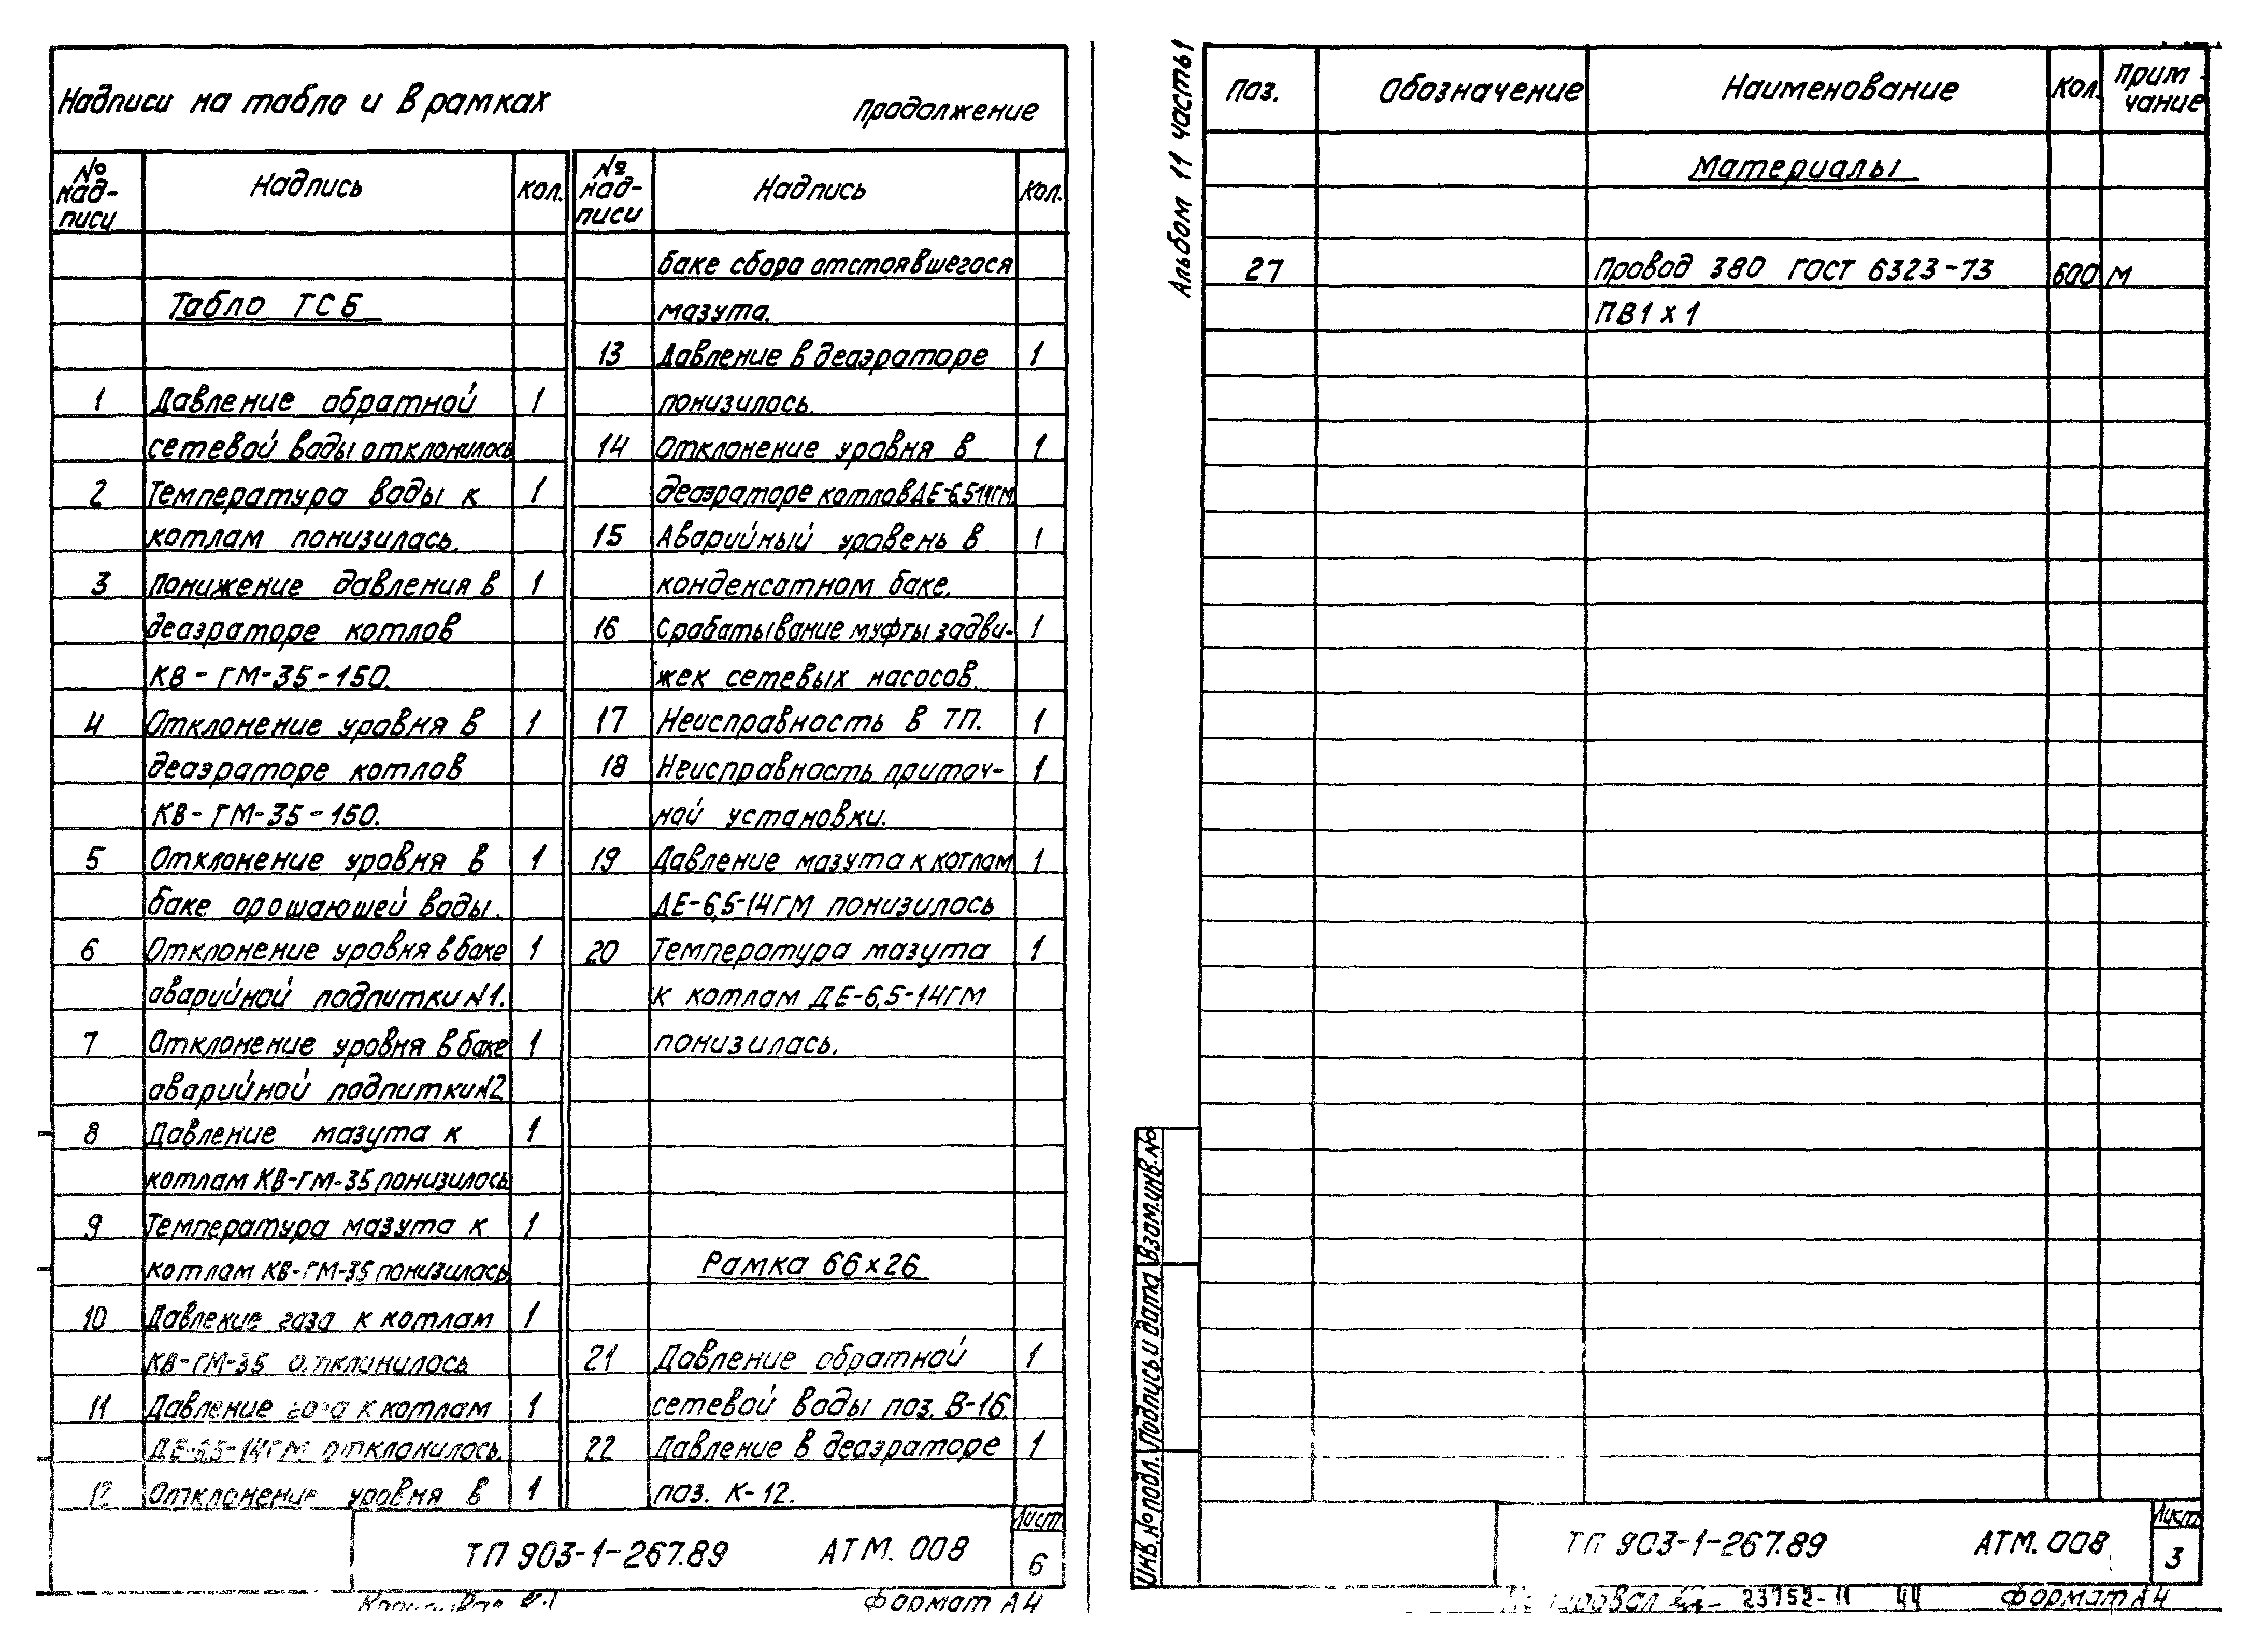 Надписи на табло и в рамках
Продолжение
№ над-писи Надпись Кол. № над-писи Надпись Кол.
Табло ТСБ
1 Давление обратной 1
сетевой воды отклонилось
2 Температура воды к 1
котлам понизилась.
3 Понижение давления в 1
деаэраторе котлов
КВ-ГМ-35-150.
4 Отклонение уровня в 1
деаэраторе котлов
КВ-ГМ-35-150.
5 Отклонение уровня в 1
баке орошающей воды.
6 Отклонение уровня в баке 1
аварийной подпитки N1.
7 Отклонение уровня в баке 1
аварийной подпитки N2
8 Давление мазута к 1
котлам КВ-ГМ-35 понизилось
9 Температура мазута к 1
котлам КВ-ГМ-35 понизилась
10 Давление газа к котлам 1
КВ-ГМ-35 отклонилось
11 Давление газа к котлам 1
ДЕ-6,5-14ГМ отклонилось.
12 Отклонение уровня в 1
баке сбора отстоявшегося
мазута.
13 Давление в деаэраторе 1
понизилось.
14 Отклонение уровня в 1
деаэраторе котлов ДЕ-6,5-14ГМ.
15 Аварийный уровень в 1
конденсатном баке.
16 Срабатывание муфты задви- 1
жек сетевых насосов.
17 Неисправность в ТП. 1
18 Неисправность приточ- 1
ной установки.
19 Давление мазута к котлам 1
ДЕ-6,5-14ГМ понизилось
20 Температура мазута 1
к котлам ДЕ-6,5-14ГМ
понизилась.
Рамка 66х26
21 Давление обратной 1
сетевой воды поз. В-16.
22 Давление в деаэраторе 1
поз. К-12.
ТП 903-1-267.89 АТМ. 008
Лист
6
Формат А4
Альбом 11 часть 1
Поз. Обозначение Наименование Кол. Прим-чание
Материалы
27 Провод 380 ГОСТ 6323-73 600 м
ПВ1х1
Инв. № подл. Подпись и дата Взам.инв.№
ТП 903-1-267.89 АТМ. 008
Лист
3
23752-11 44
Формат А4